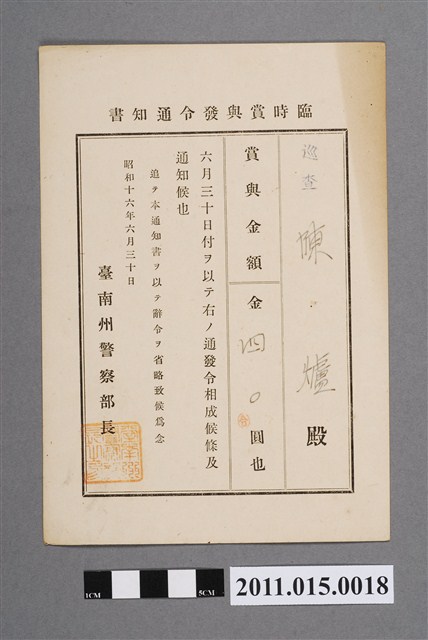 臨時賞與發令通知書
巡査 陳 爐 殿
賞與金額 金 四〇 圓也
六月三十日付ヲ以テ右ノ通發令相成候條及
通知候也
追テ本通知書ヲ以テ辭令ヲ省略致候爲念
昭和十六年六月三十日
臺南州警察部長
1CM
5CM
2011.015.0018